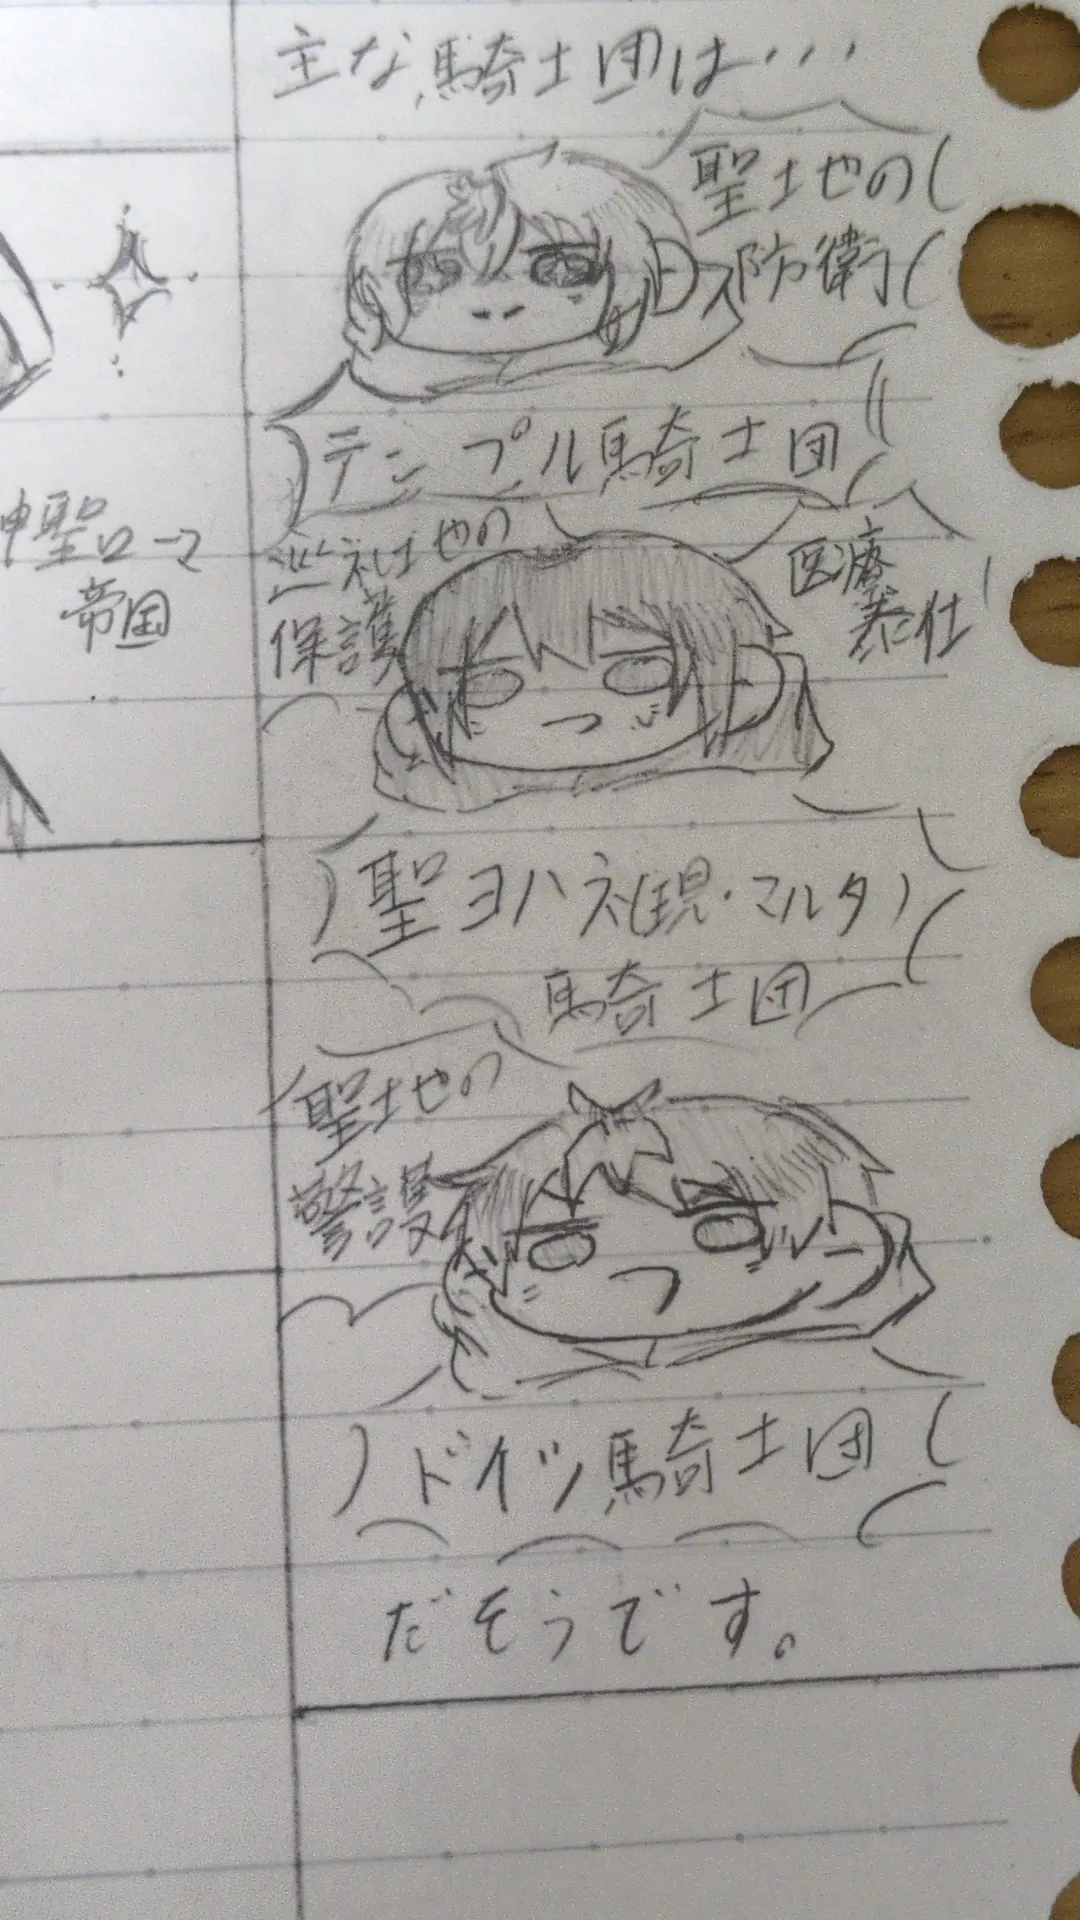 主な騎士団は・・・
聖地の
防衛
テンプル騎士団
神聖ローマ
帝国
巡礼地の
保護
医療
奉仕
聖ヨハネ(現・マルタ)
騎士団
聖地の
警護
ドイツ騎士団
だそうです。